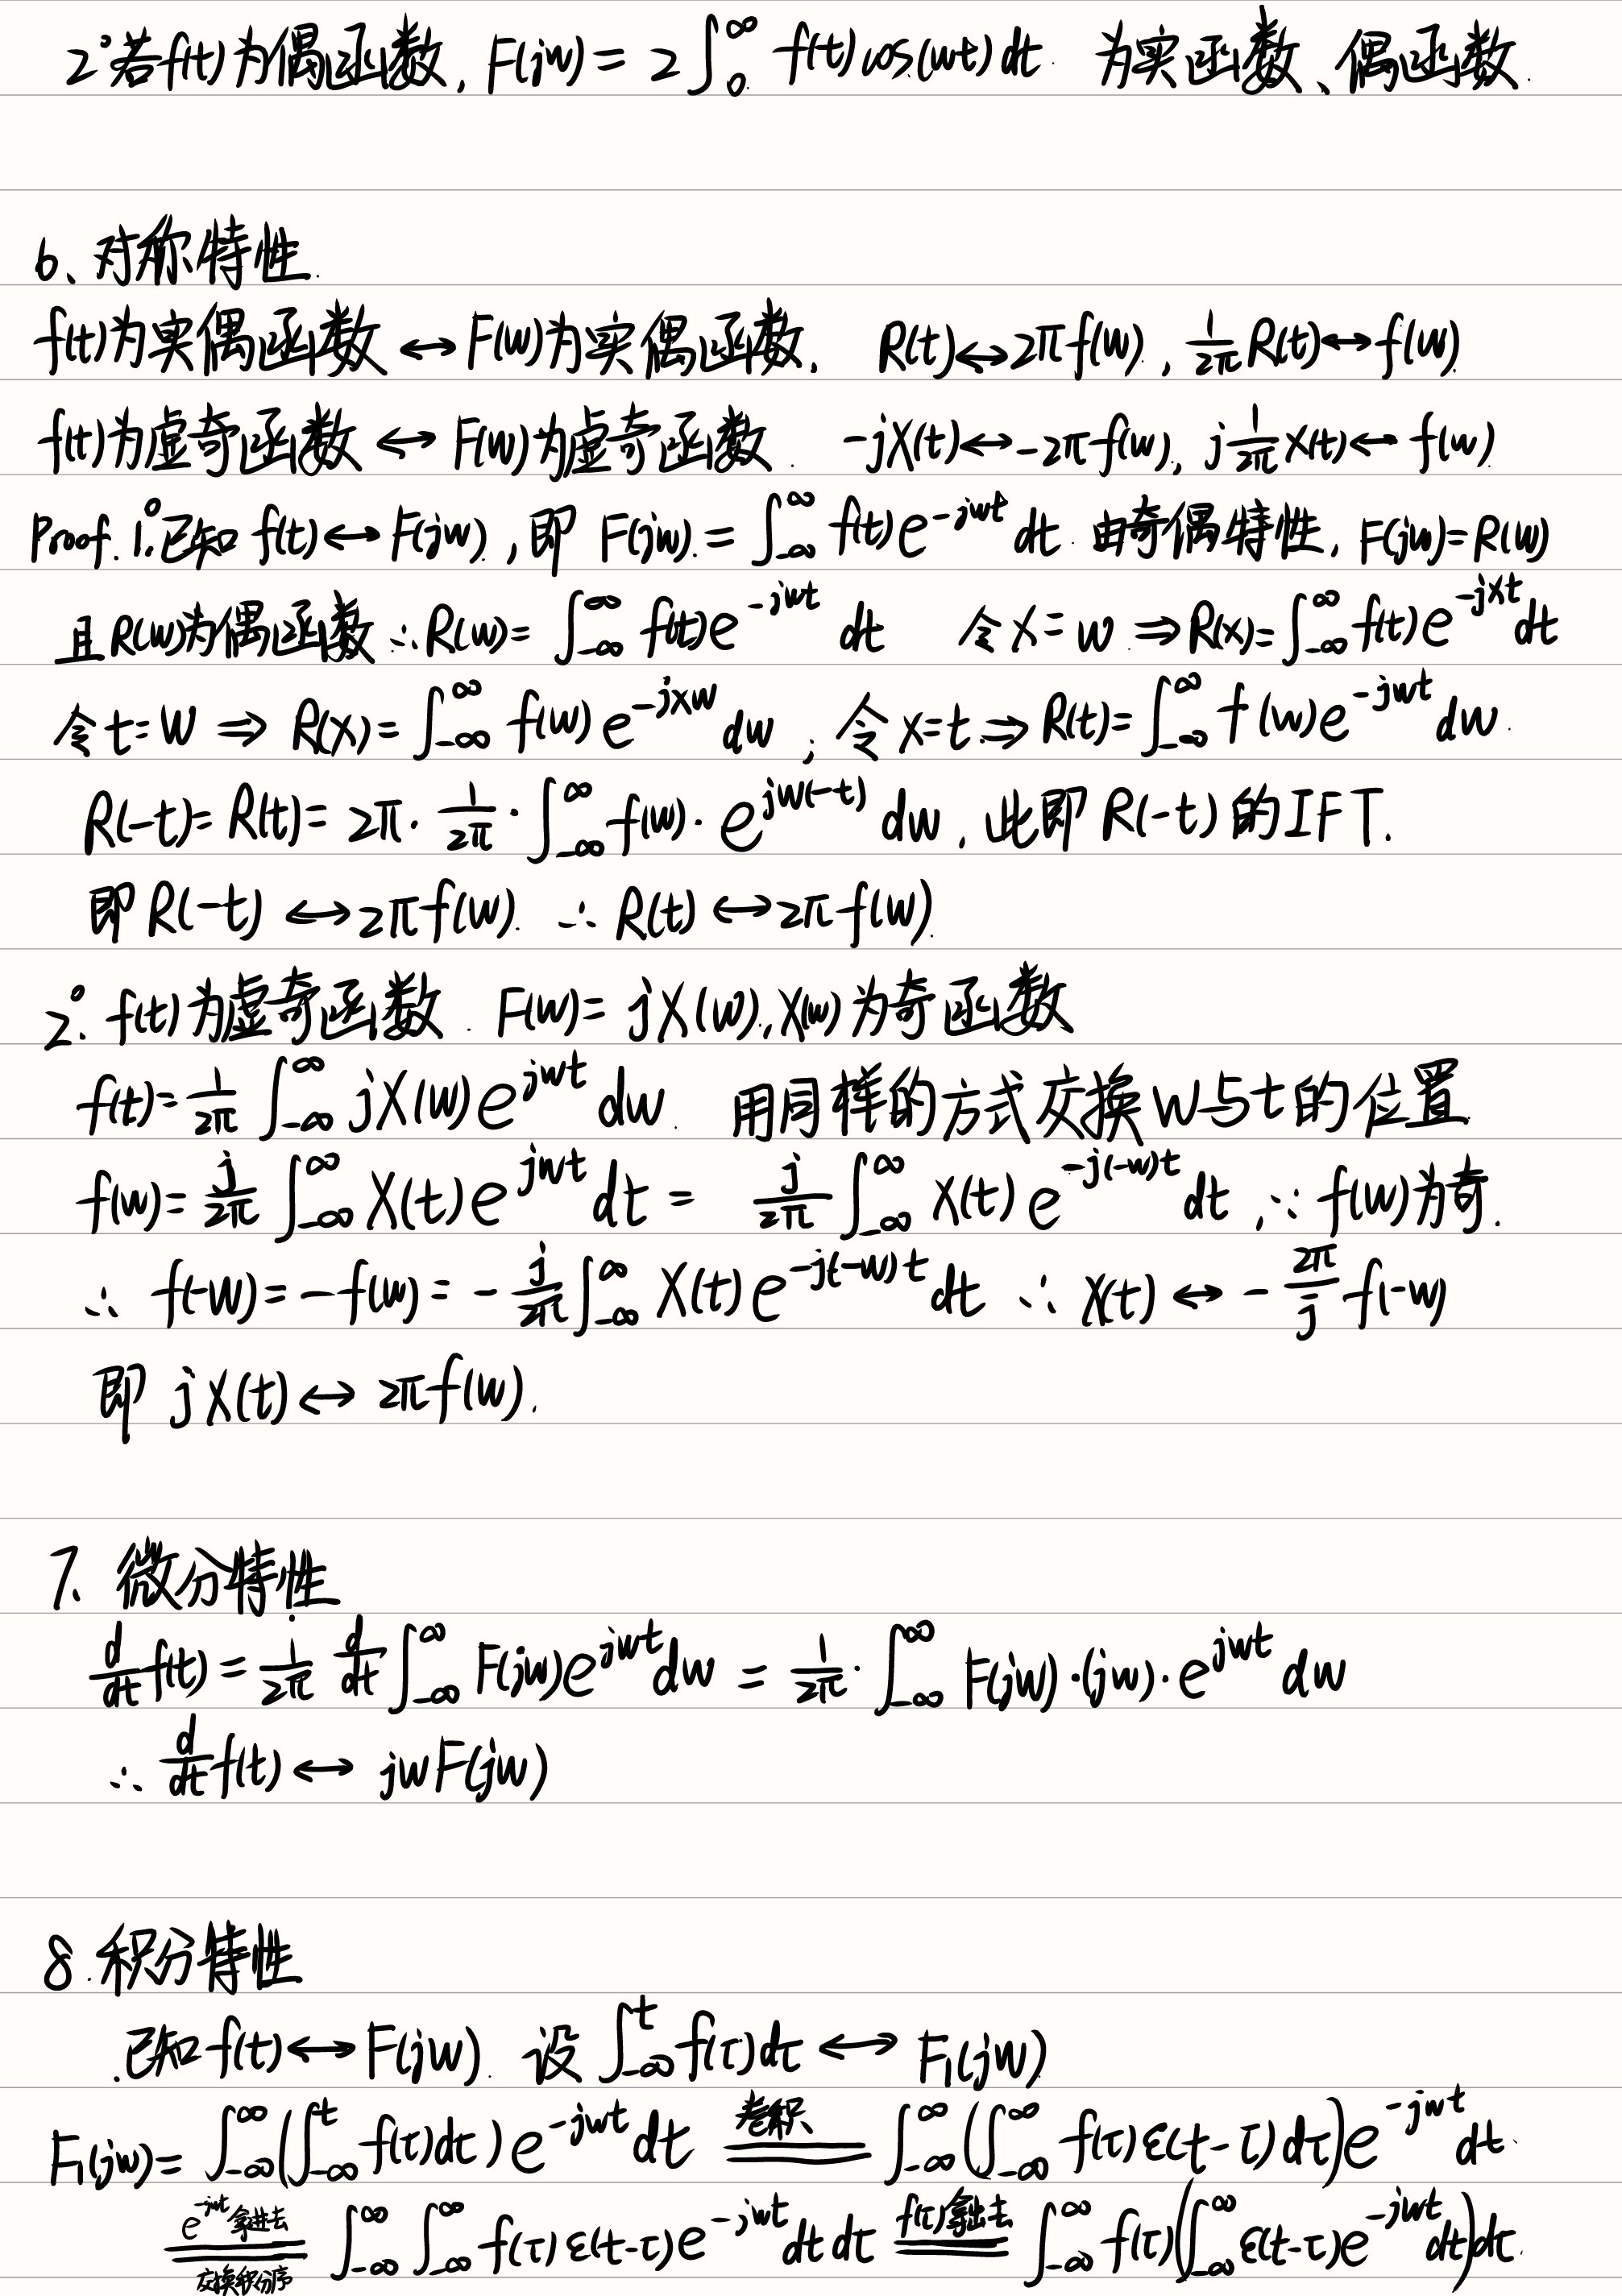 2° 若f(t)为偶函数, F(jw) = 2∫₀^∞ f(t)cos(wt)dt 为实函数、偶函数.
6、对称特性.
f(t)为实偶函数 ↔ F(w)为实偶函数. R(t)↔2πf(w), 1/2π R(t)↔f(w)
f(t)为虚奇函数 ↔ F(w)为虚奇函数. -jX(t)↔-2πf(w), j 1/2π X(t)↔ f(w)
Proof. 1°. 已知 f(t)↔F(jw), 即 F(jw) = ∫_{-∞}^{∞} f(t)e^{-jwt} dt. 由奇偶特性, F(jw)=R(w)
且R(w)为偶函数 ∴R(w)= ∫_{-∞}^{∞} f(t)e^{-jwt} dt 令x=w ⇒R(x)=∫_{-∞}^{∞} f(t)e^{-jxt}dt
令t=w ⇒ R(x)=∫_{-∞}^{∞} f(w)e^{-jxw}dw; 令x=t⇒R(t)=∫_{-∞}^{∞} f(w)e^{-jwt}dw.
R(-t)=R(t)= 2π· 1/2π ·∫_{-∞}^{∞} f(w)·e^{jw(-t)} dw, 此即R(-t)的IFT.
即R(-t) ↔2πf(w). ∴ R(t) ↔2πf(w).
2°. f(t)为虚奇函数. F(w)= jX(w), X(w)为奇函数
f(t)= 1/2π ∫_{-∞}^{∞} jX(w)e^{jwt} dw. 用同样的方式交换w与t的位置.
f(w)= j/2π ∫_{-∞}^{∞} X(t)e^{jwt}dt = j/2π ∫_{-∞}^{∞} X(t)e^{-j(-w)t}dt, ∵ f(w)为奇.
∴ f(-w)=-f(w) = - j/2π ∫_{-∞}^{∞} X(t)e^{-j(-w)t}dt ∴ X(t) ↔ - 2π/j f(-w)
即 jX(t)↔ 2πf(w).
7、微分特性
d/dt f(t) = 1/2π d/dt ∫_{-∞}^{∞} F(jw)e^{jwt}dw = 1/2π · ∫_{-∞}^{∞} F(jw)·(jw)·e^{jwt} dw
∴ d/dt f(t) ↔ jwF(jw)
8. 积分特性
已知f(t)↔F(jw). 设 ∫_{-∞}^{t} f(τ)dτ ↔ F₁(jw)
F₁(jw)= ∫_{-∞}^{∞}(∫_{-∞}^{t} f(τ)dτ)e^{-jwt}dt 卷积= ∫_{-∞}^{∞}(∫_{-∞}^{∞} f(τ)ε(t-τ)dτ)e^{-jwt}dt.
e^{-jwt}拿进去=交换积分序 ∫_{-∞}^{∞}∫_{-∞}^{∞} f(τ)ε(t-τ)e^{-jwt}dtdτ f(τ)拿出去= ∫_{-∞}^{∞} f(τ)(∫_{-∞}^{∞} ε(t-τ)e^{-jwt}dt)dτ.